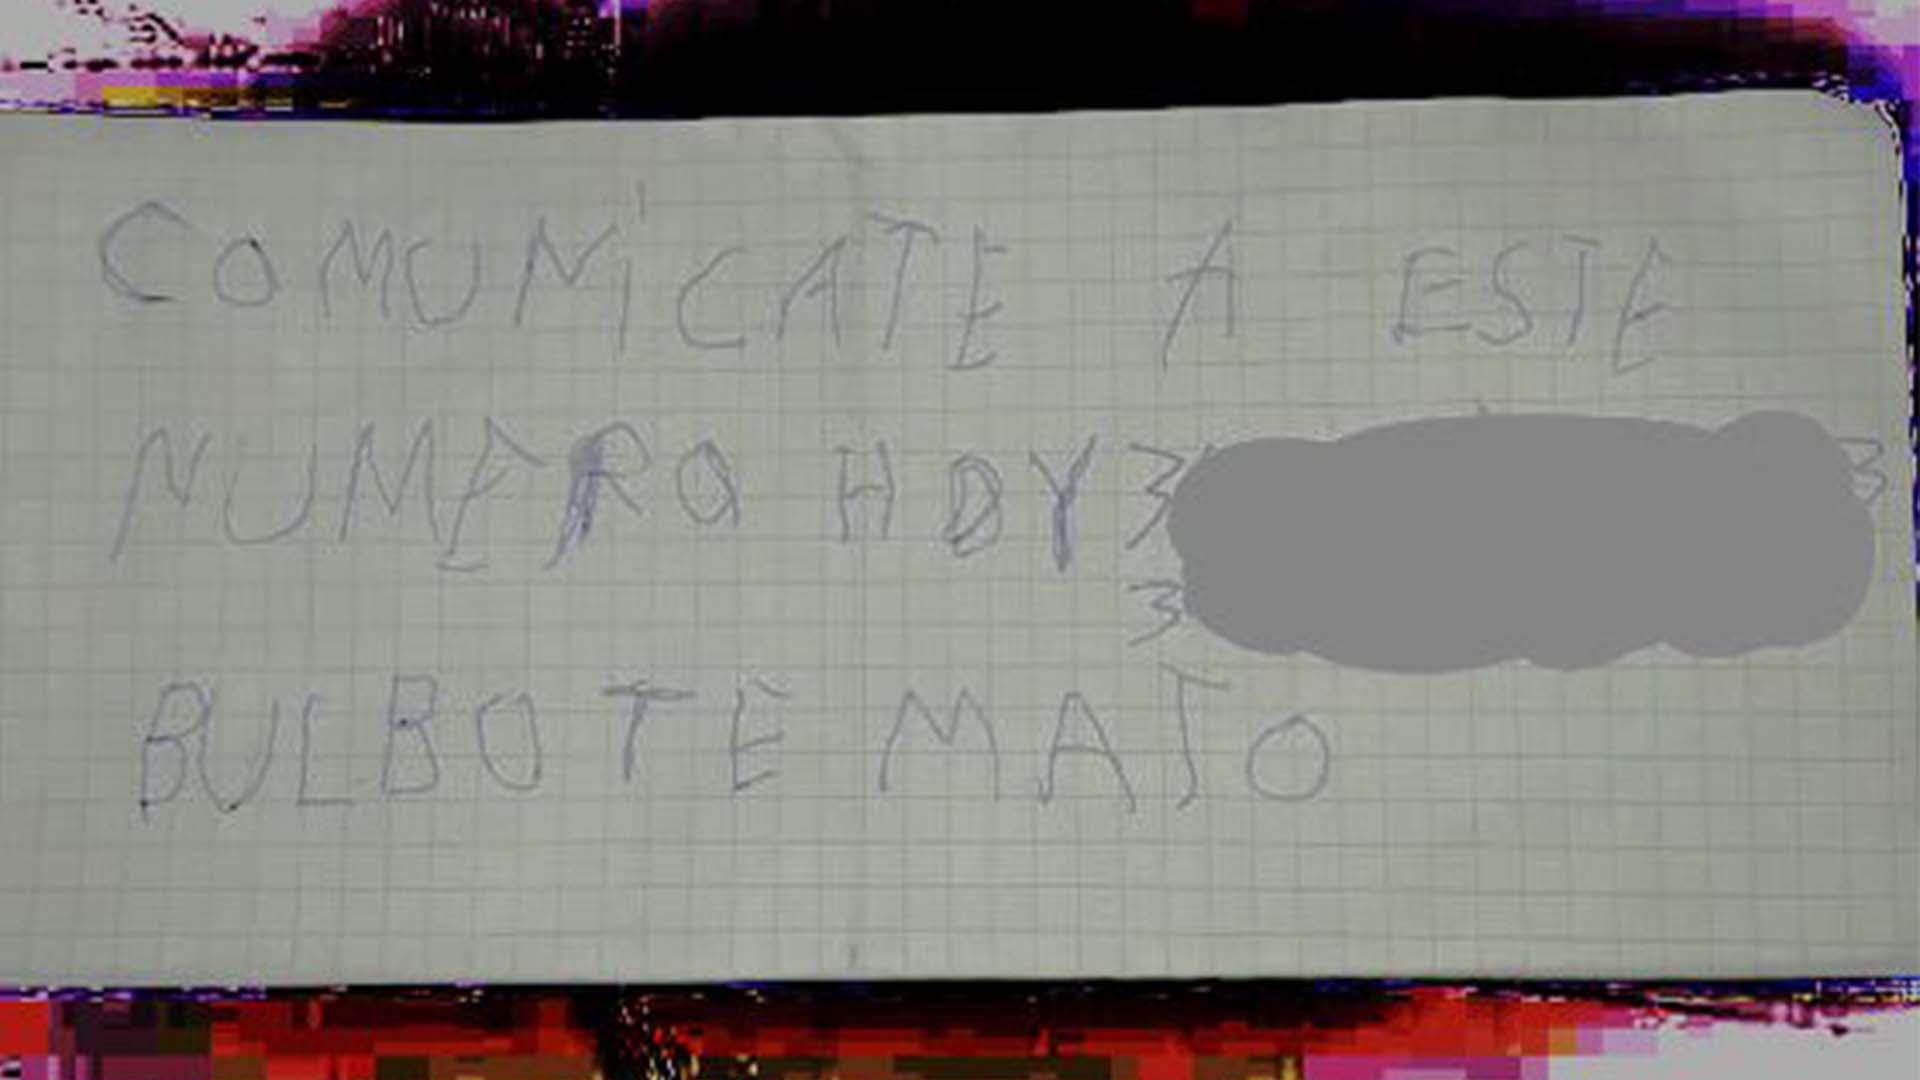 COMUNICATE A ESTE
NUMERO HOY 3 3
3
BULBO TE MATO